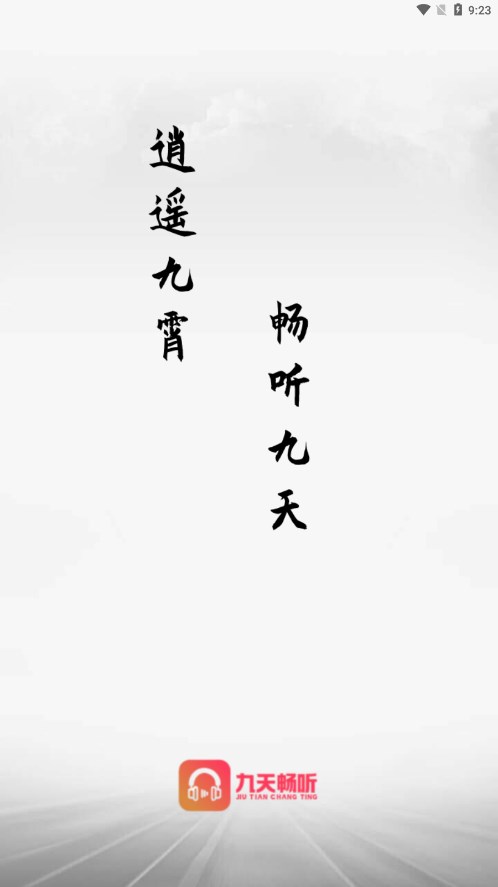 9:23
逍遥九霄
畅听九天
九天畅听
JIU TIAN CHANG TING